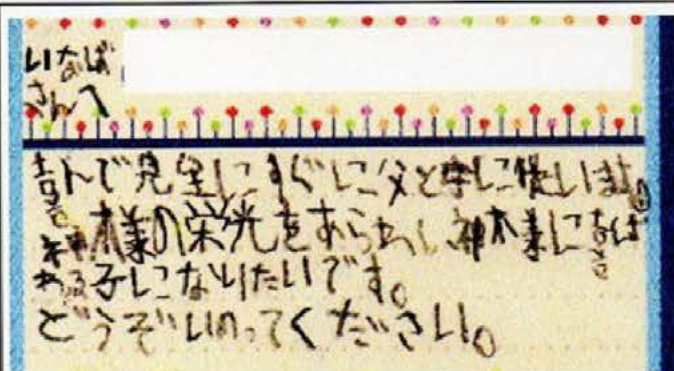 いなば
さんへ
喜んで完全にすぐに父と母に従います。
神様の栄光をあらわし、神様に喜ば
れる子になりたいです。
どうぞいのってください。